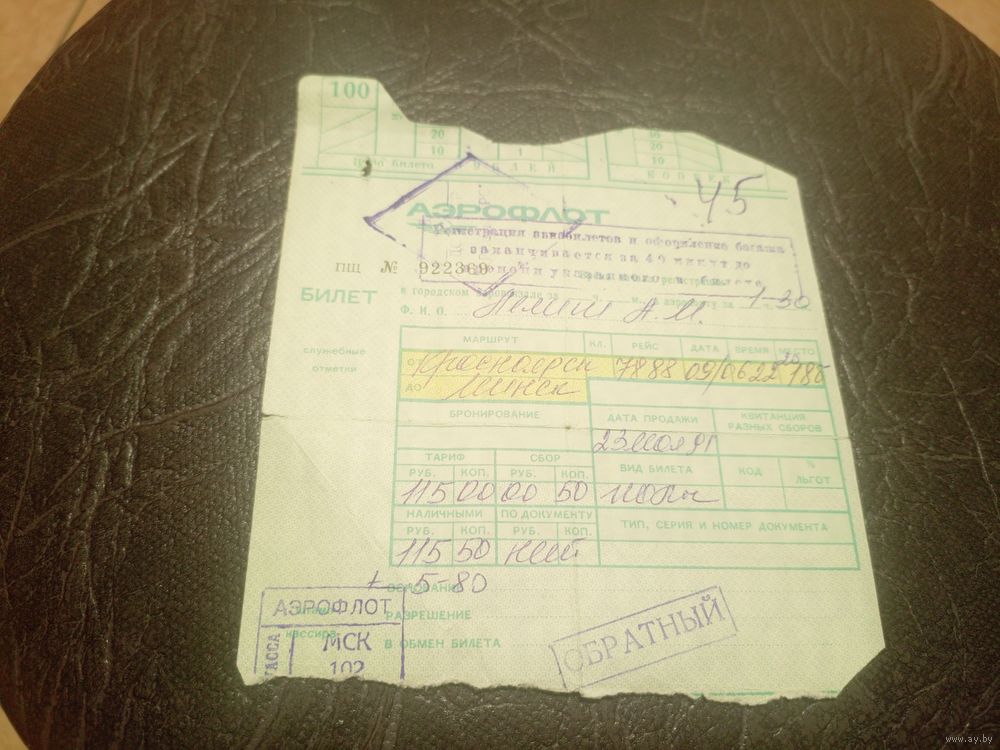 100
20 30
10 1 20
10
Цена билета РУБЛЕЙ КОПЕЕК
45
АЭРОФЛОТ
Регистрация авиабилетов и оформление багажа
заканчивается за 40 минут до
указанного в билете
ПЩ № 922369
БИЛЕТ
в городском аэровокзале за ч. м. в аэропорту за 1-30
Ф. И. О. А.М.
служебные
отметки
МАРШРУТ КЛ. РЕЙС ДАТА ВРЕМЯ МЕСТО
ОТ Красноярск 7888 09/06 22 20
ДО Минск
БРОНИРОВАНИЕ ДАТА ПРОДАЖИ КВИТАНЦИЯ
РАЗНЫХ СБОРОВ
23 мая 91
ТАРИФ СБОР ВИД БИЛЕТА КОД % ЛЬГОТ
РУБ. КОП. РУБ. КОП.
115 00 00 50 полн
НАЛИЧНЫМИ ПО ДОКУМЕНТУ ТИП, СЕРИЯ И НОМЕР ДОКУМЕНТА
РУБ. КОП. РУБ. КОП.
115 50
+ 5-80
ОСНОВАНИЕ
АЭРОФЛОТ РАЗРЕШЕНИЕ
кассира
КАССА МСК В ОБМЕН БИЛЕТА
102
ОБРАТНЫЙ
www.ay.by